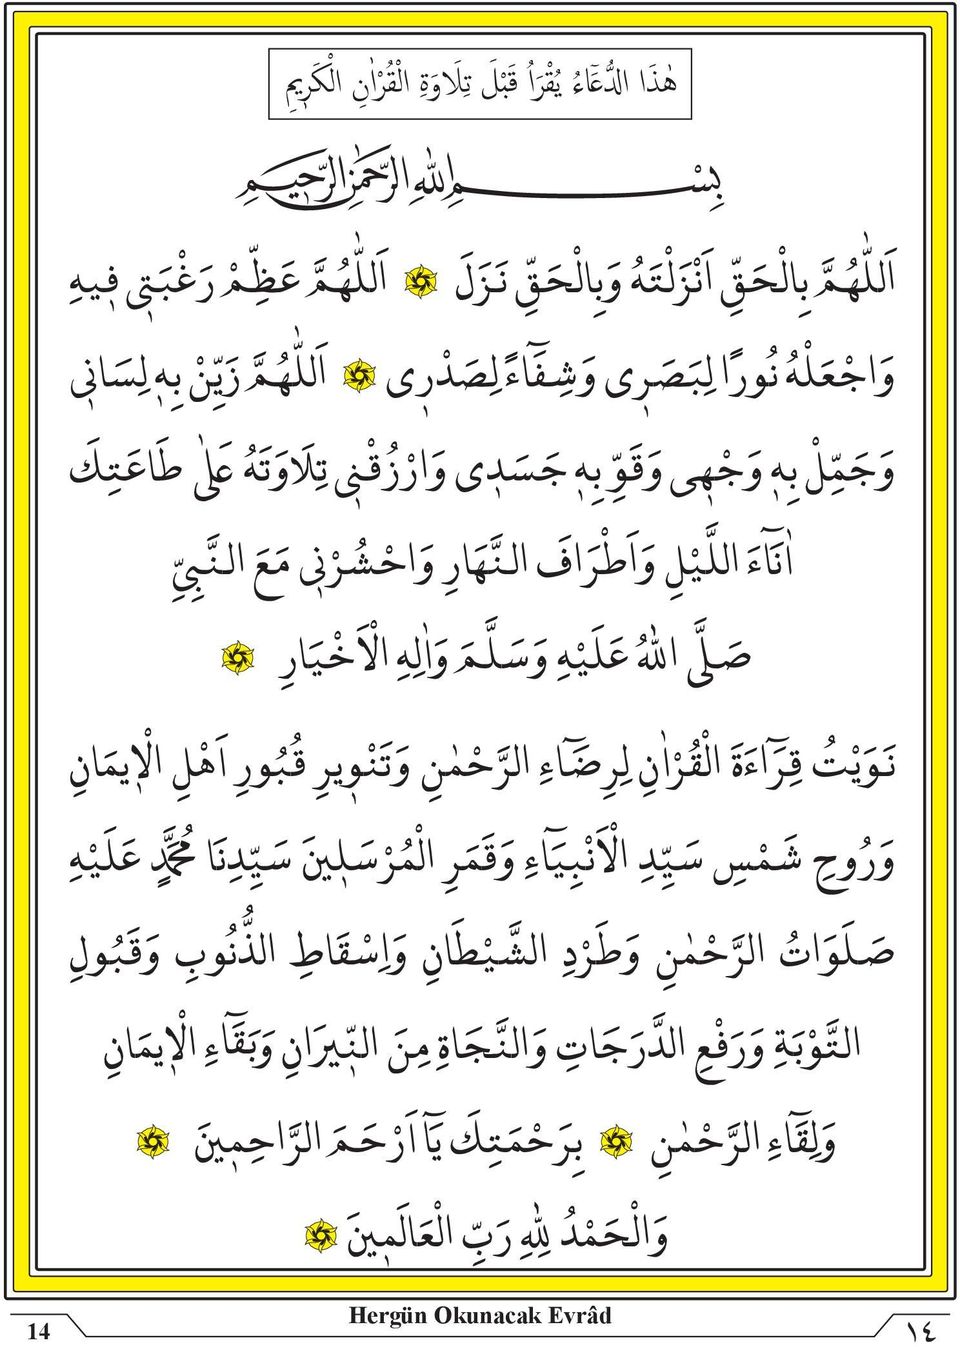 هٰذَا الدُّعَٓاءُ يُقْرَاُ قَبْلَ تِلَاوَةِ الْقُرْاٰنِ الْكَر۪يمِ
بِسْمِ اللّٰهِ الرَّحْمٰنِ الرَّح۪يمِ
اَللّٰهُمَّ بِالْحَقِّ اَنْزَلْتَهُ وَبِالْحَقِّ نَزَلَ ۞ اَللّٰهُمَّ عَظِّمْ رَغْبَت۪ى ف۪يهِ
وَاجْعَلْهُ نُورًا لِبَصَر۪ى وَشِفَٓاءً لِصَدْر۪ى ۞ اَللّٰهُمَّ زَيِّنْ بِه۪ لِسَان۪ى
وَجَمِّلْ بِه۪ وَجْه۪ى وَقَوِّ بِه۪ جَسَد۪ى وَارْزُقْن۪ى تِلَاوَتَهُ عَلٰى طَاعَتِكَ
اٰنَٓاءَ اللَّيْلِ وَاَطْرَافَ النَّهَارِ وَاحْشُرْن۪ى مَعَ النَّبِىِّ
صَلَّى اللّٰهُ عَلَيْهِ وَسَلَّمَ وَاٰلِهِ الْاَخْيَارِ ۞
نَوَيْتُ قِرَٓاءَةَ الْقُرْاٰنِ لِرِضَٓاءِ الرَّحْمٰنِ وَتَنْو۪يرِ قُبُورِ اَهْلِ الْا۪يمَانِ
وَرُوحِ شَمْسِ سَيِّدِ الْاَنْبِيَٓاءِ وَقَمَرِ الْمُرْسَل۪ينَ سَيِّدِنَا مُحَمَّدٍ عَلَيْهِ
صَلَوَاتُ الرَّحْمٰنِ وَطَرْدِ الشَّيْطَانِ وَاِسْقَاطِ الذُّنُوبِ وَقَبُولِ
التَّوْبَةِ وَرَفْعِ الدَّرَجَاتِ وَالنَّجَاةِ مِنَ النّ۪يرَانِ وَبَقَٓاءِ الْا۪يمَانِ
وَلِقَٓاءِ الرَّحْمٰنِ ۞ بِرَحْمَتِكَ يَٓا اَرْحَمَ الرَّاحِم۪ينَ ۞
وَالْحَمْدُ لِلّٰهِ رَبِّ الْعَالَم۪ينَ ۞
14 Hergün Okunacak Evrâd ١٤